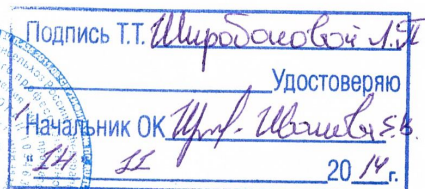 Подпись Т.Т. Широбоковой Л.П
Удостоверяю
Начальник ОК Иванова Е.В.
"14 11 2014 г.